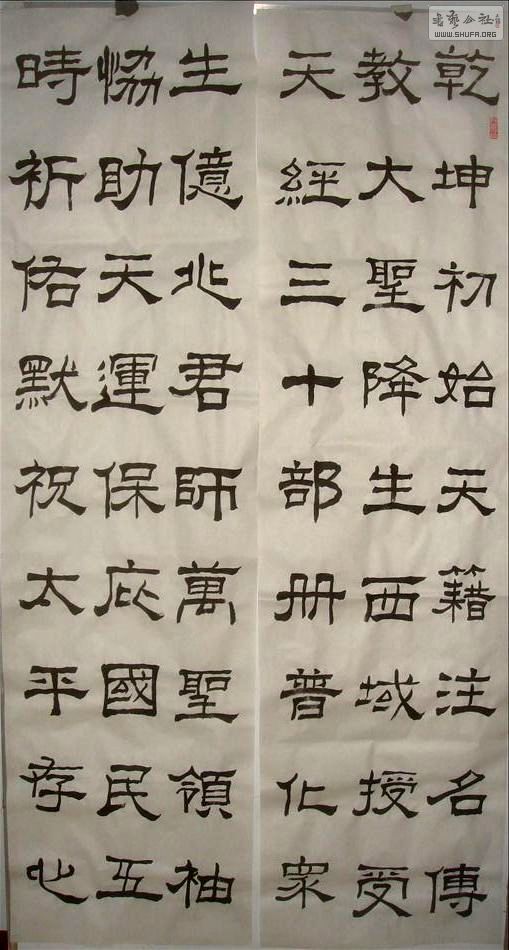 乾坤初始天籍注名傳
教大聖降生西域授受
天經三十部册普化眾
生億兆君師萬聖領袖
恊助天運保庇國民五
時祈佑默祝太平存心
書藝公社
WWW.SHUFA.ORG